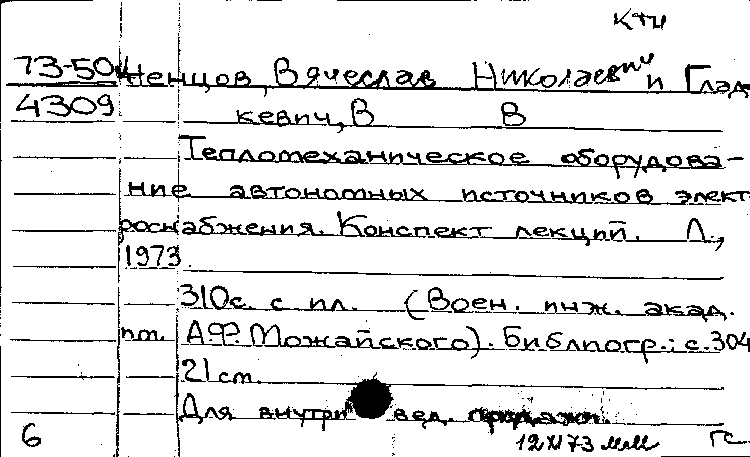 КТИ
73-504 Ненцов, Вячеслав Николаевич и Глад
4309 кевич, В В
Тепломеханическое оборудова-
ние автономных источников элект
роснабжения. Конспект лекций. Л.,
1973.
310с. с ил. (Воен. инж. акад.
им. А.Ф. Можайского). Библиогр.: с. 304
21 см.
Для внутри вед. продажи.
6 12 XI 73 ГС